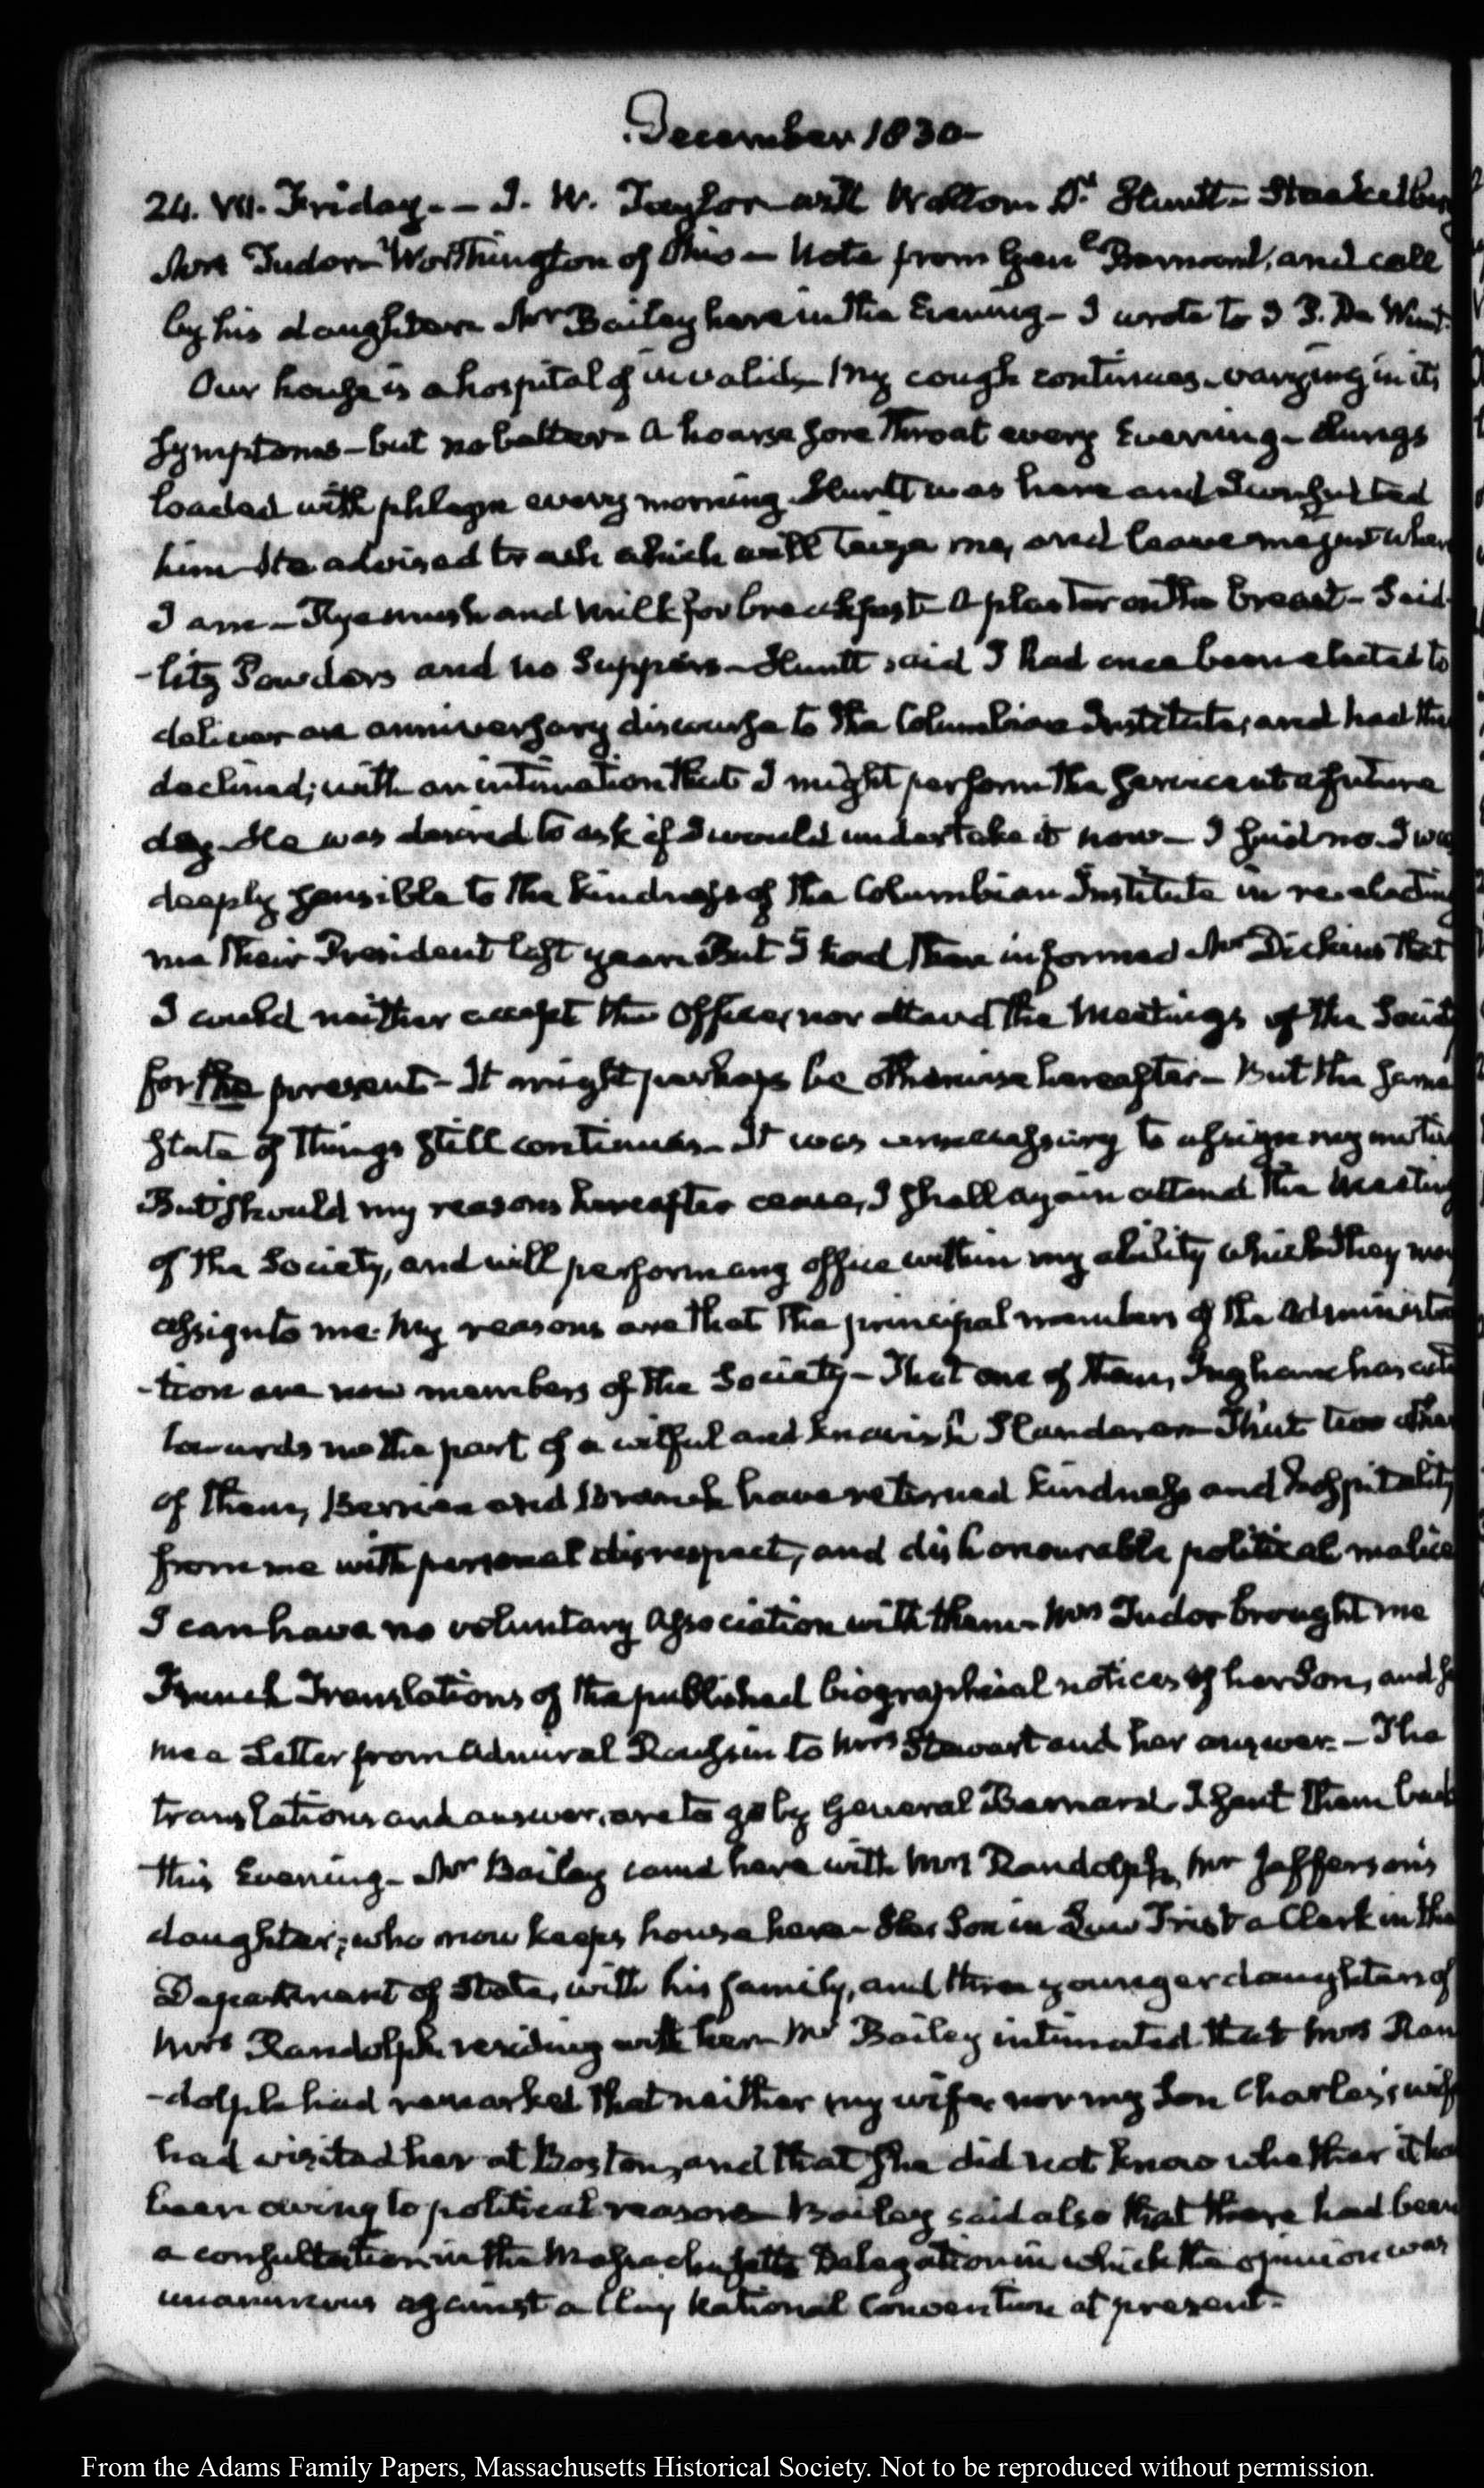 December 1830-
24. VII. Friday. - J. W. Taylor with Walton Dr. Huntt - Stackelberg
Mrs Tudor - Worthington of Ohio - Note from Genl Bernard, and call
by his daughter. Mr Bailey here in the Evening - I wrote to J P. De Wint.
Our house is a hospital of invalids - My cough continues varying in its
symptoms - but no better - A hoarse sore throat every Evening - Lungs
loaded with phlegm every morning. Huntt was here and I consulted
him He advised to which will me, and leave me just where
I am - Rye mush and milk for breakfast - A plaster on the breast - Seid-
-litz Powders and no Suppers - Huntt said I had once been elected to
deliver an anniversary discourse to the Columbian Institute, and had then
declined; with an intimation that I might perform the service at a future
day. He was desired to ask if I would undertake it now - I said no. I was
deeply sensible to the kindness of the Columbian Institute in re-electing
me their President last year. But I had then informed Mr Dickins that
I could neither accept the Office, nor attend the Meetings of the Society
for the present - It might perhaps be otherwise hereafter - But the same
state of things still continues - It was unnecessary to assign my motive
But should my reasons hereafter cease, I shall again attend the Meeting
of the Society, and will perform any office within my ability which they may
assign to me. My reasons are that the principal members of the Administra
-tion are now members of the Society - That one of them, Ingham has acted
towards me the part of a wilful and knavish Slanderer - That two other
of them, Berrien and Branch have returned kindness and hospitality
from me with personal disrespect, and dishonourable political malice
I can have no voluntary Association with them - Mrs Tudor brought me
French Translations of the published biographical notices of her Son, and
me a Letter from Admiral Roussin to Mrs Stewart and her answer. - The
translations and answer, are to go by General Bernard. I sent them back
this Evening - Mr Bailey came here with Mrs Randolph, Mr Jefferson's
daughter; who now keeps house here - Her Son in Law Trist a Clerk in the
Department of State, with his family, and three younger daughters of
Mrs Randolph residing with her - Mr Bailey intimated that Mrs Ran
-dolph had remarked that neither my wife nor my Son Charles's wife
had visited her at Boston, and that she did not know whether it had
been owing to political reasons - Bailey said also that there had been
a consultation in the Massachusetts Delegation in which the opinion was
unanimous against a Clay National Convention at present.-
From the Adams Family Papers, Massachusetts Historical Society. Not to be reproduced without permission.